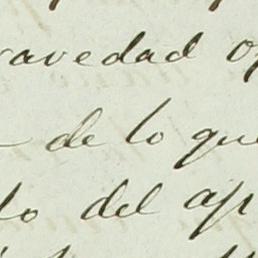 ravedad op
de lo que
to del ap